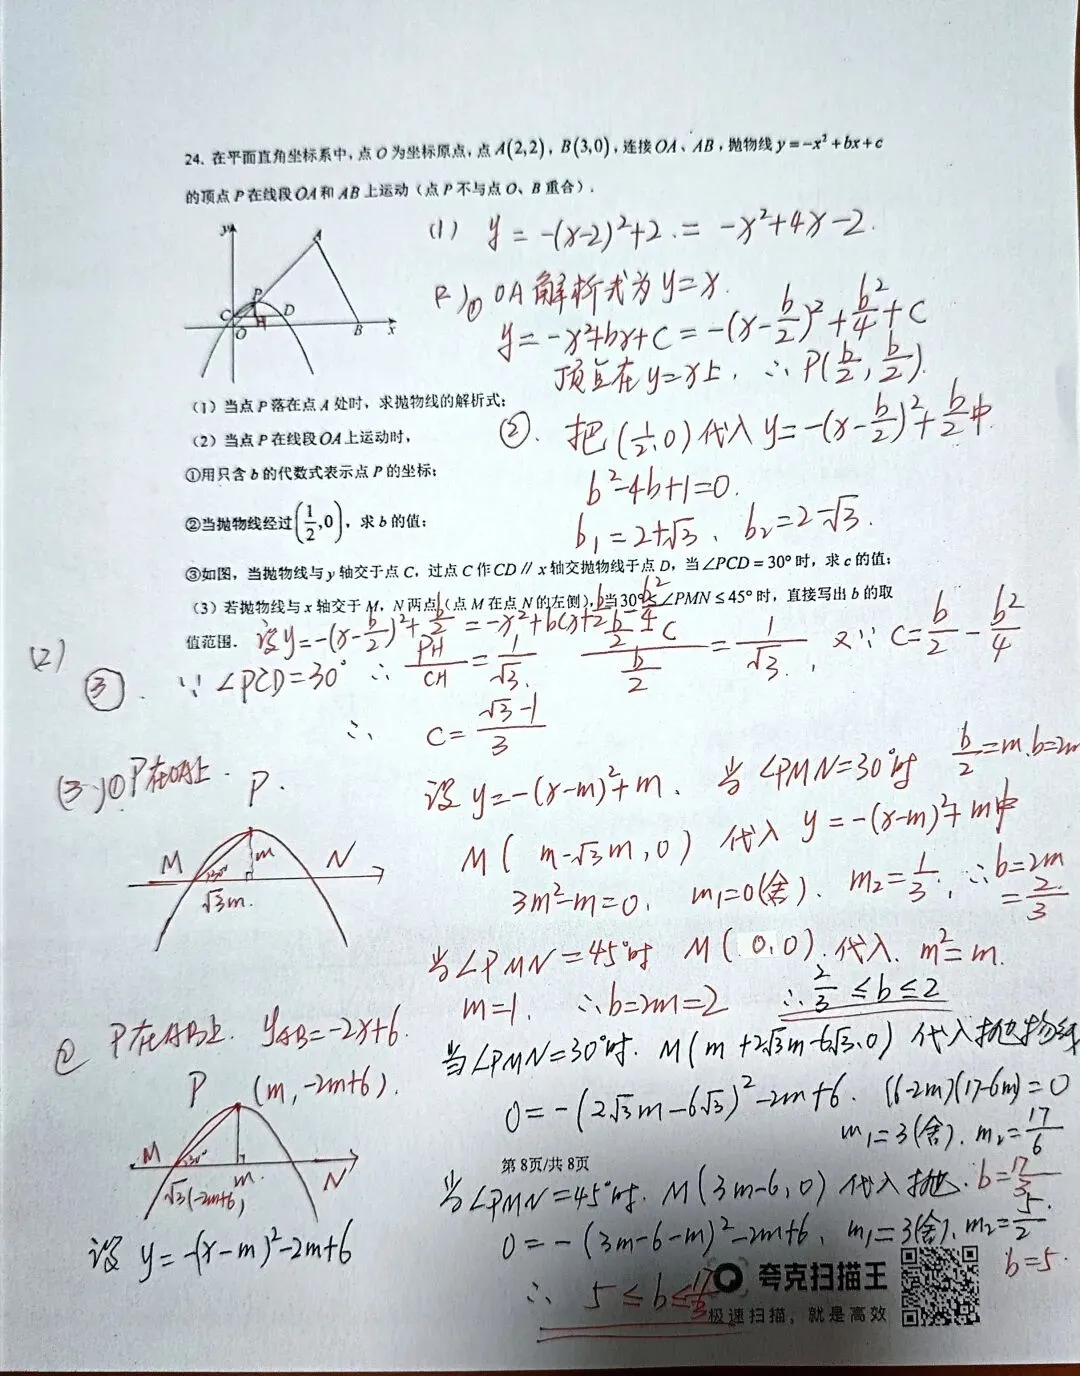 24. 在平面直角坐标系中,点O为坐标原点,点A(2,2),B(3,0),连接OA、AB,抛物线y=-x²+bx+c
的顶点P在线段OA和AB上运动(点P不与点O、B重合).
(1) y=-(x-2)²+2.=-x²+4x-2.
y
A
P
C
D
H
O
B
x
2)① OA解析式为y=x.
y=-x²+bx+c=-(x-b/2)²+b²/4+c
顶点在y=x上,∴P(b/2,b/2).
(1)当点P落在点A处时,求抛物线的解析式;
(2)当点P在线段OA上运动时,
②. 把(1/2,0)代入y=-(x-b/2)²+b/2中
①用只含b的代数式表示点P的坐标;
b²-4b+1=0.
②当抛物线经过(1/2,0),求b的值;
b₁=2+√3、b₂=2-√3.
③如图,当抛物线与y轴交于点C,过点C作CD∥x轴交抛物线于点D,当∠PCD=30°时,求c的值;
(3)若抛物线与x轴交于M,N两点(点M在点N的左侧),当30°≤∠PMN≤45°时,直接写出b的取
值范围.
设y=-(x-b/2)²+b/2=-x²+bx+b/2-b²/4
(2)
③. ∵∠PCD=30° ∴PH/CH=1/√3. (b/2-c)/(b/2)=1/√3, 又∵c=b/2-b²/4
∴ c=(√3-1)/3
(3)①P在OA上.
P.
M
N
30°
m
√3m.
设y=-(x-m)²+m. 当∠PMN=30°时 b/2=m.b=2m
M(m-√3m,0)代入y=-(x-m)²+m中
3m²-m=0. m₁=0(舍). m₂=1/3, ∴b=2m
=2/3
当∠PMN=45°时 M(0,0).代入. m²=m.
m=1. ∴b=2m=2 ∴2/3≤b≤2
② P在AB上. yAB=-2x+6.
P (m,-2m+6).
M
N
30°
m
√3(-2m+6)
设y=-(x-m)²-2m+6
当∠PMN=30°时. M(m+2√3m-6√3,0)代入抛物线
0=-(2√3m-6√3)²-2m+6. (6-2m)(17-6m)=0
m₁=3(舍). m₂=17/6
b=17/3
第8页/共8页
当∠PMN=45°时. M(3m-6,0)代入抛.
0=-(3m-6-m)²-2m+6, m₁=3(舍), m₂=5/2
b=5.
∴ 5≤b≤17/3
夸克扫描王
极速扫描,就是高效